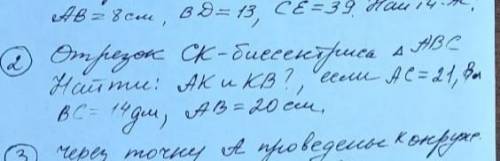 AB = 8 см, BD = 13, CE = 39. Най
2 Отрезок СК - биссектриса △ ABC
Найти: AK и KB?, если AC = 21,
BC = 14 дм, AB = 20 см.
3 через точку A проведены к окруж